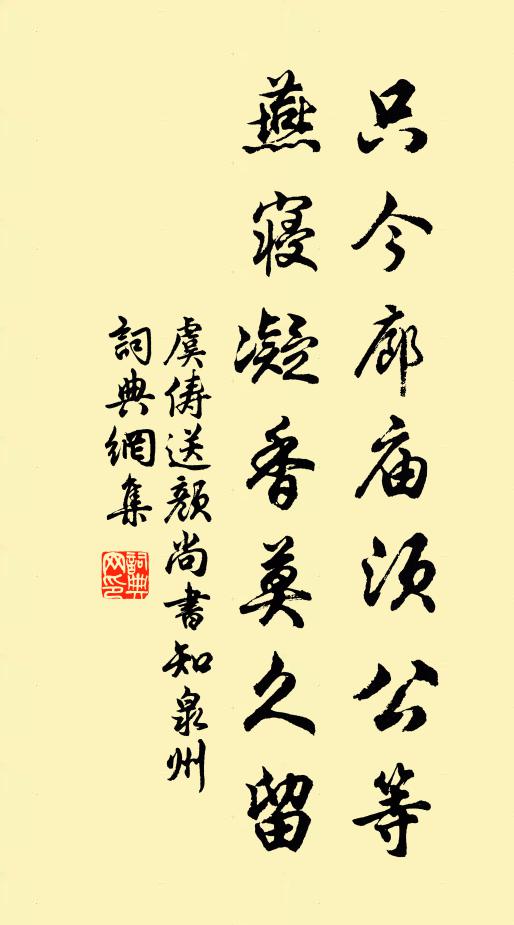 只今廊庙须公等
燕寝凝香莫久留
虞俦送颜尚书知泉州
词典网集
詞典
网印